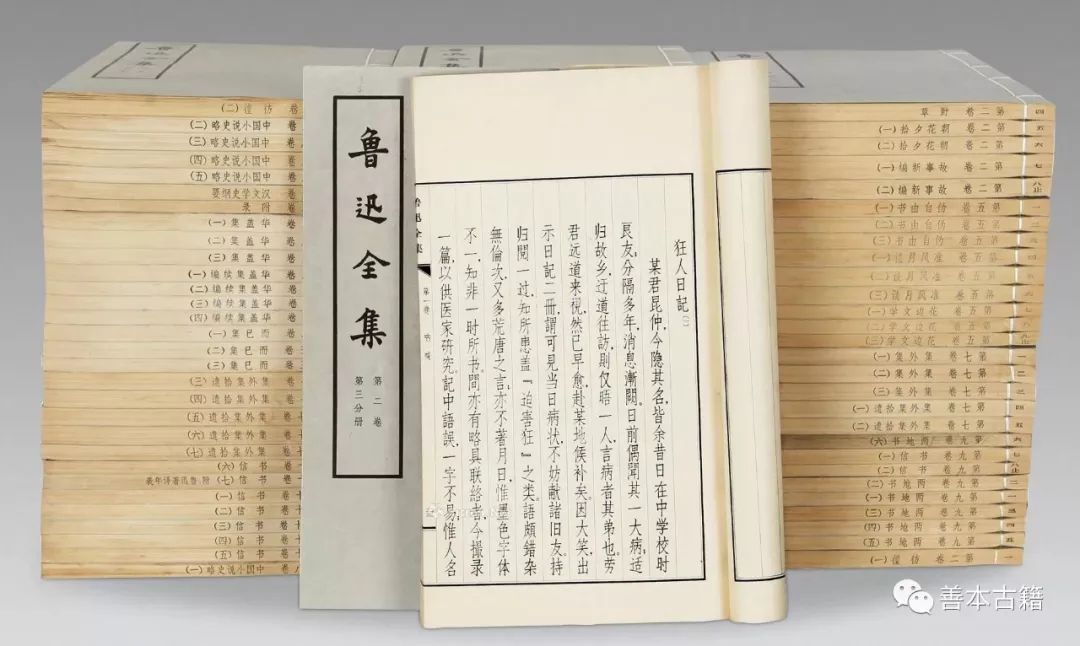 鲁迅全集
第二卷
第三分册
鲁迅全集
第一卷 呐喊
狂人日記(一)
某君昆仲,今隐其名,皆余昔日在中学校时
良友;分隔多年,消息漸闕。日前偶聞其一大病;适
归故乡,迂道往訪,則仅晤一人,言病者其弟也。劳
君远道来視,然已早愈,赴某地候补矣。因大笑,出
示日記二冊,謂可見当日病状,不妨献諸旧友。持
归閱一过,知所患盖『迫害狂』之类。語頗錯杂
無倫次,又多荒唐之言;亦不著月日,惟墨色字体
不一,知非一时所书。間亦有略具联絡者,今撮录
一篇,以供医家研究。記中語誤,一字不易;惟人名
卷 彷徨(二)
卷 中国小说史略(二)
卷 中国小说史略(三)
卷 中国小说史略(四)
卷 中国小说史略(五)
卷 汉文学史纲要
卷 附录
卷 华盖集(一)
卷 华盖集(二)
卷 华盖集(三)
卷 华盖集续编(一)
卷 华盖集续编(二)
卷 华盖集续编(三)
卷 华盖集续编(四)
卷 而已集(一)
卷 而已集(二)
卷 而已集(三)
卷 集外集拾遗(三)
卷 集外集拾遗(四)
卷 集外集拾遗(五)
卷 集外集拾遗(六)
卷 集外集拾遗(七)
卷 书信(六)
卷 书信(七) 附 鲁迅著译年表
卷 书信(一)
卷 书信(二)
卷 书信(四)
卷 书信(五)
卷 中国小说史略(一)
四 第二卷 野草
五 第二卷 朝花夕拾(一)
六 第二卷 朝花夕拾(二)
七 第二卷 故事新编(一)
八止 第二卷 故事新编(二)
一 第五卷 伪自由书(一)
第五卷 伪自由书(二)
第五卷 伪自由书(三)
第五卷 准风月谈(一)
第五卷 准风月谈(二)
第五卷 准风月谈(三)
第五卷 花边文学(一)
第五卷 花边文学(二)
第五卷 花边文学(三)
一 第七卷 集外集(一)
二 第七卷 集外集(二)
三 第七卷 集外集(三)
四 第七卷 集外集拾遗(一)
五 第七卷 集外集拾遗(二)
第九卷 两地书(六)
第九卷 书信(一)
第九卷 书信(二)
第九卷 两地书(一)
第九卷 两地书(二)
第九卷 两地书(三)
第九卷 两地书(四)
第九卷 两地书(五)
一 第二卷 彷徨(一)
善本古籍